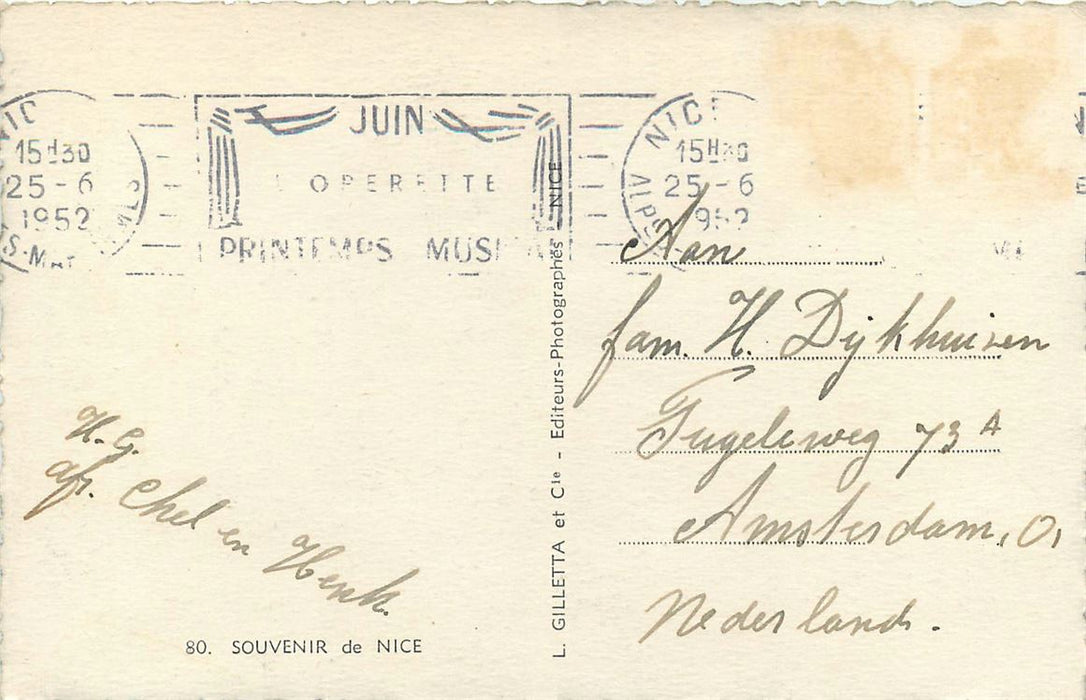 NIC
15H30
25-6
1952
JUIN
OPERETTE
PRINTEMPS MUSI
NICE
15H30
25-6
1952
H. G.
afz. Chel en Henk.
80. SOUVENIR de NICE
L. GILLETTA et Cie - Editeurs-Photographes - NICE
Aan
fam. H. Dijkhuizen
Fugeleweg 73 A
Amsterdam, O,
Nederland.